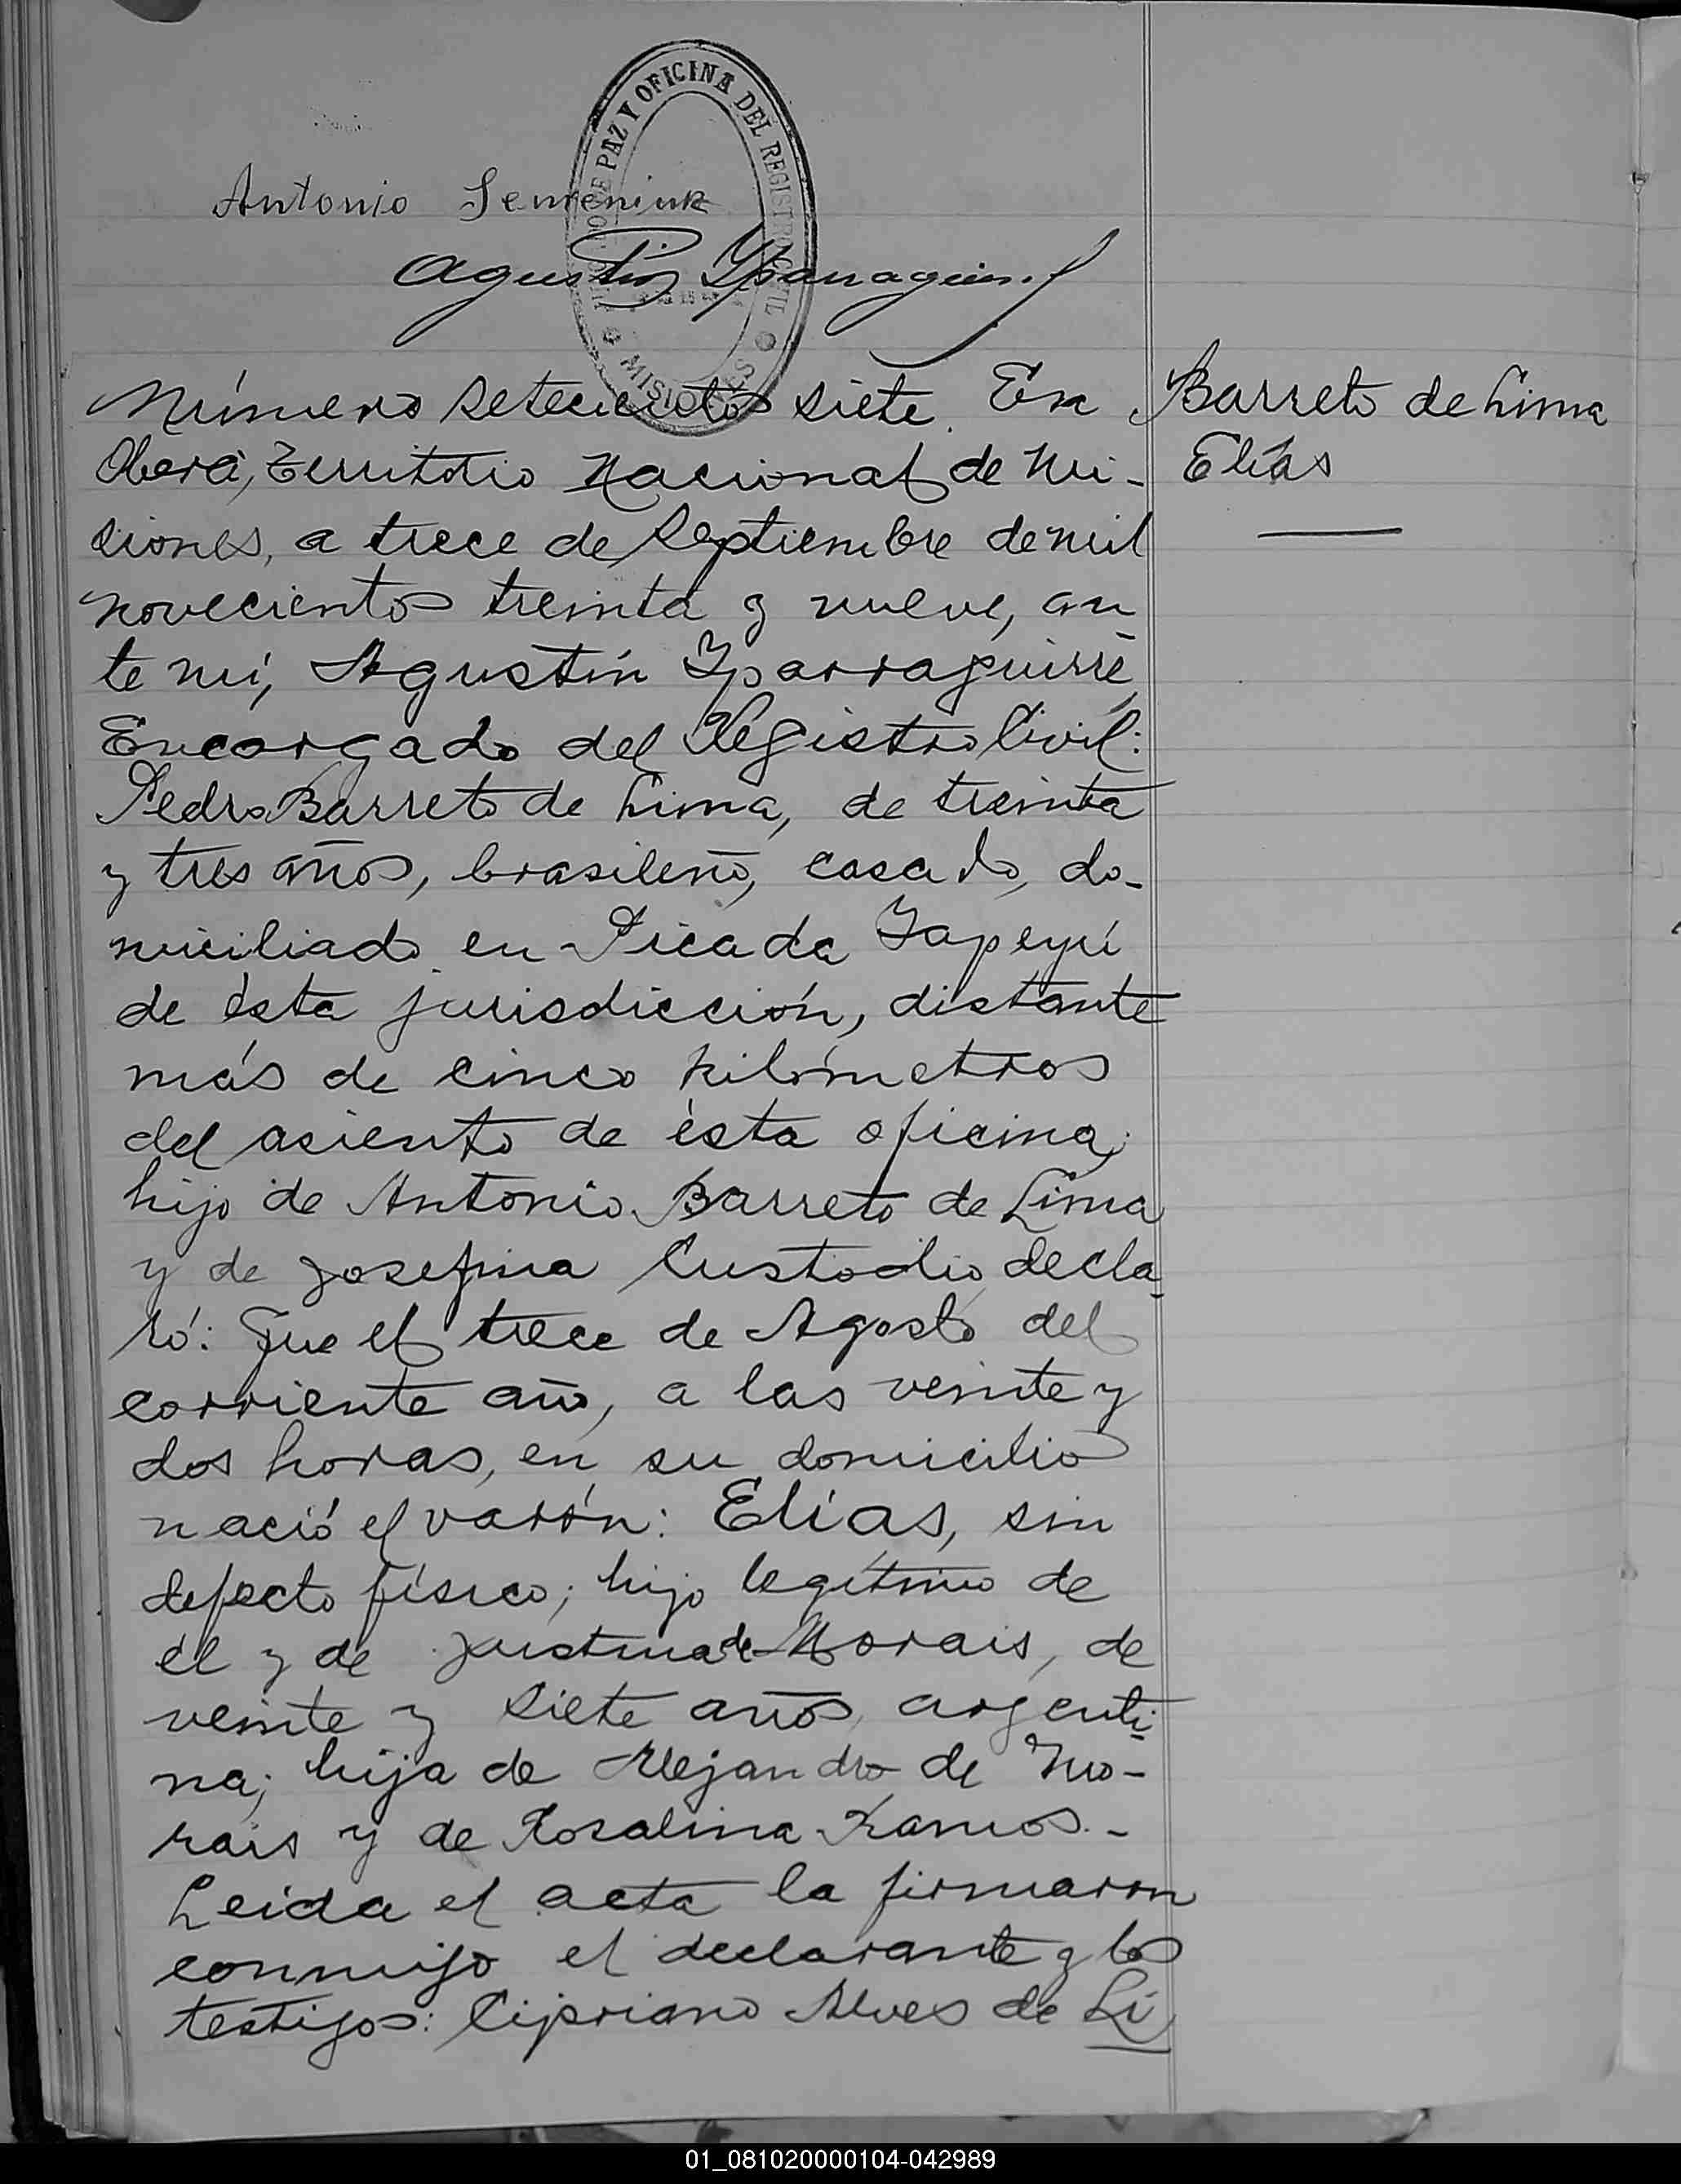 JUZGADO DE PAZ Y OFICINA DEL REGISTRO CIVIL
MISIONES
Antonio Semeniuk
Agustín Yparraguirre
Número setecientos siete. En
Oberá, Territorio Nacional de Mi-
siones, a trece de Septiembre de mil
novecientos treinta y nueve, an-
te mí, Agustín Yparraguirre,
Encargado del Registro Civil:
Pedro Barreto de Lima, de treinta
y tres años, brasileño, casado, do-
miciliado en Picada Yapeyú
de ésta jurisdicción, distante
más de cinco kilómetros
del asiento de ésta oficina;
hijo de Antonio Barreto de Lima
y de Josefina Custodio, decla-
ró: Que el trece de Agosto del
corriente año, a las veinte y
dos horas, en su domicilio
nació el varón: Elías, sin
defecto físico; hijo legítimo de
él y de Justina de Morais, de
veinte y siete años, argenti-
na; hija de Alejandro de Mo-
rais y de Rosalina Ramos.-
Leida el acta la firmaron
conmigo el declarante y los
testigos: Cipriano Alves de Li
Barreto de Lima
Elías
01_081020000104-042989